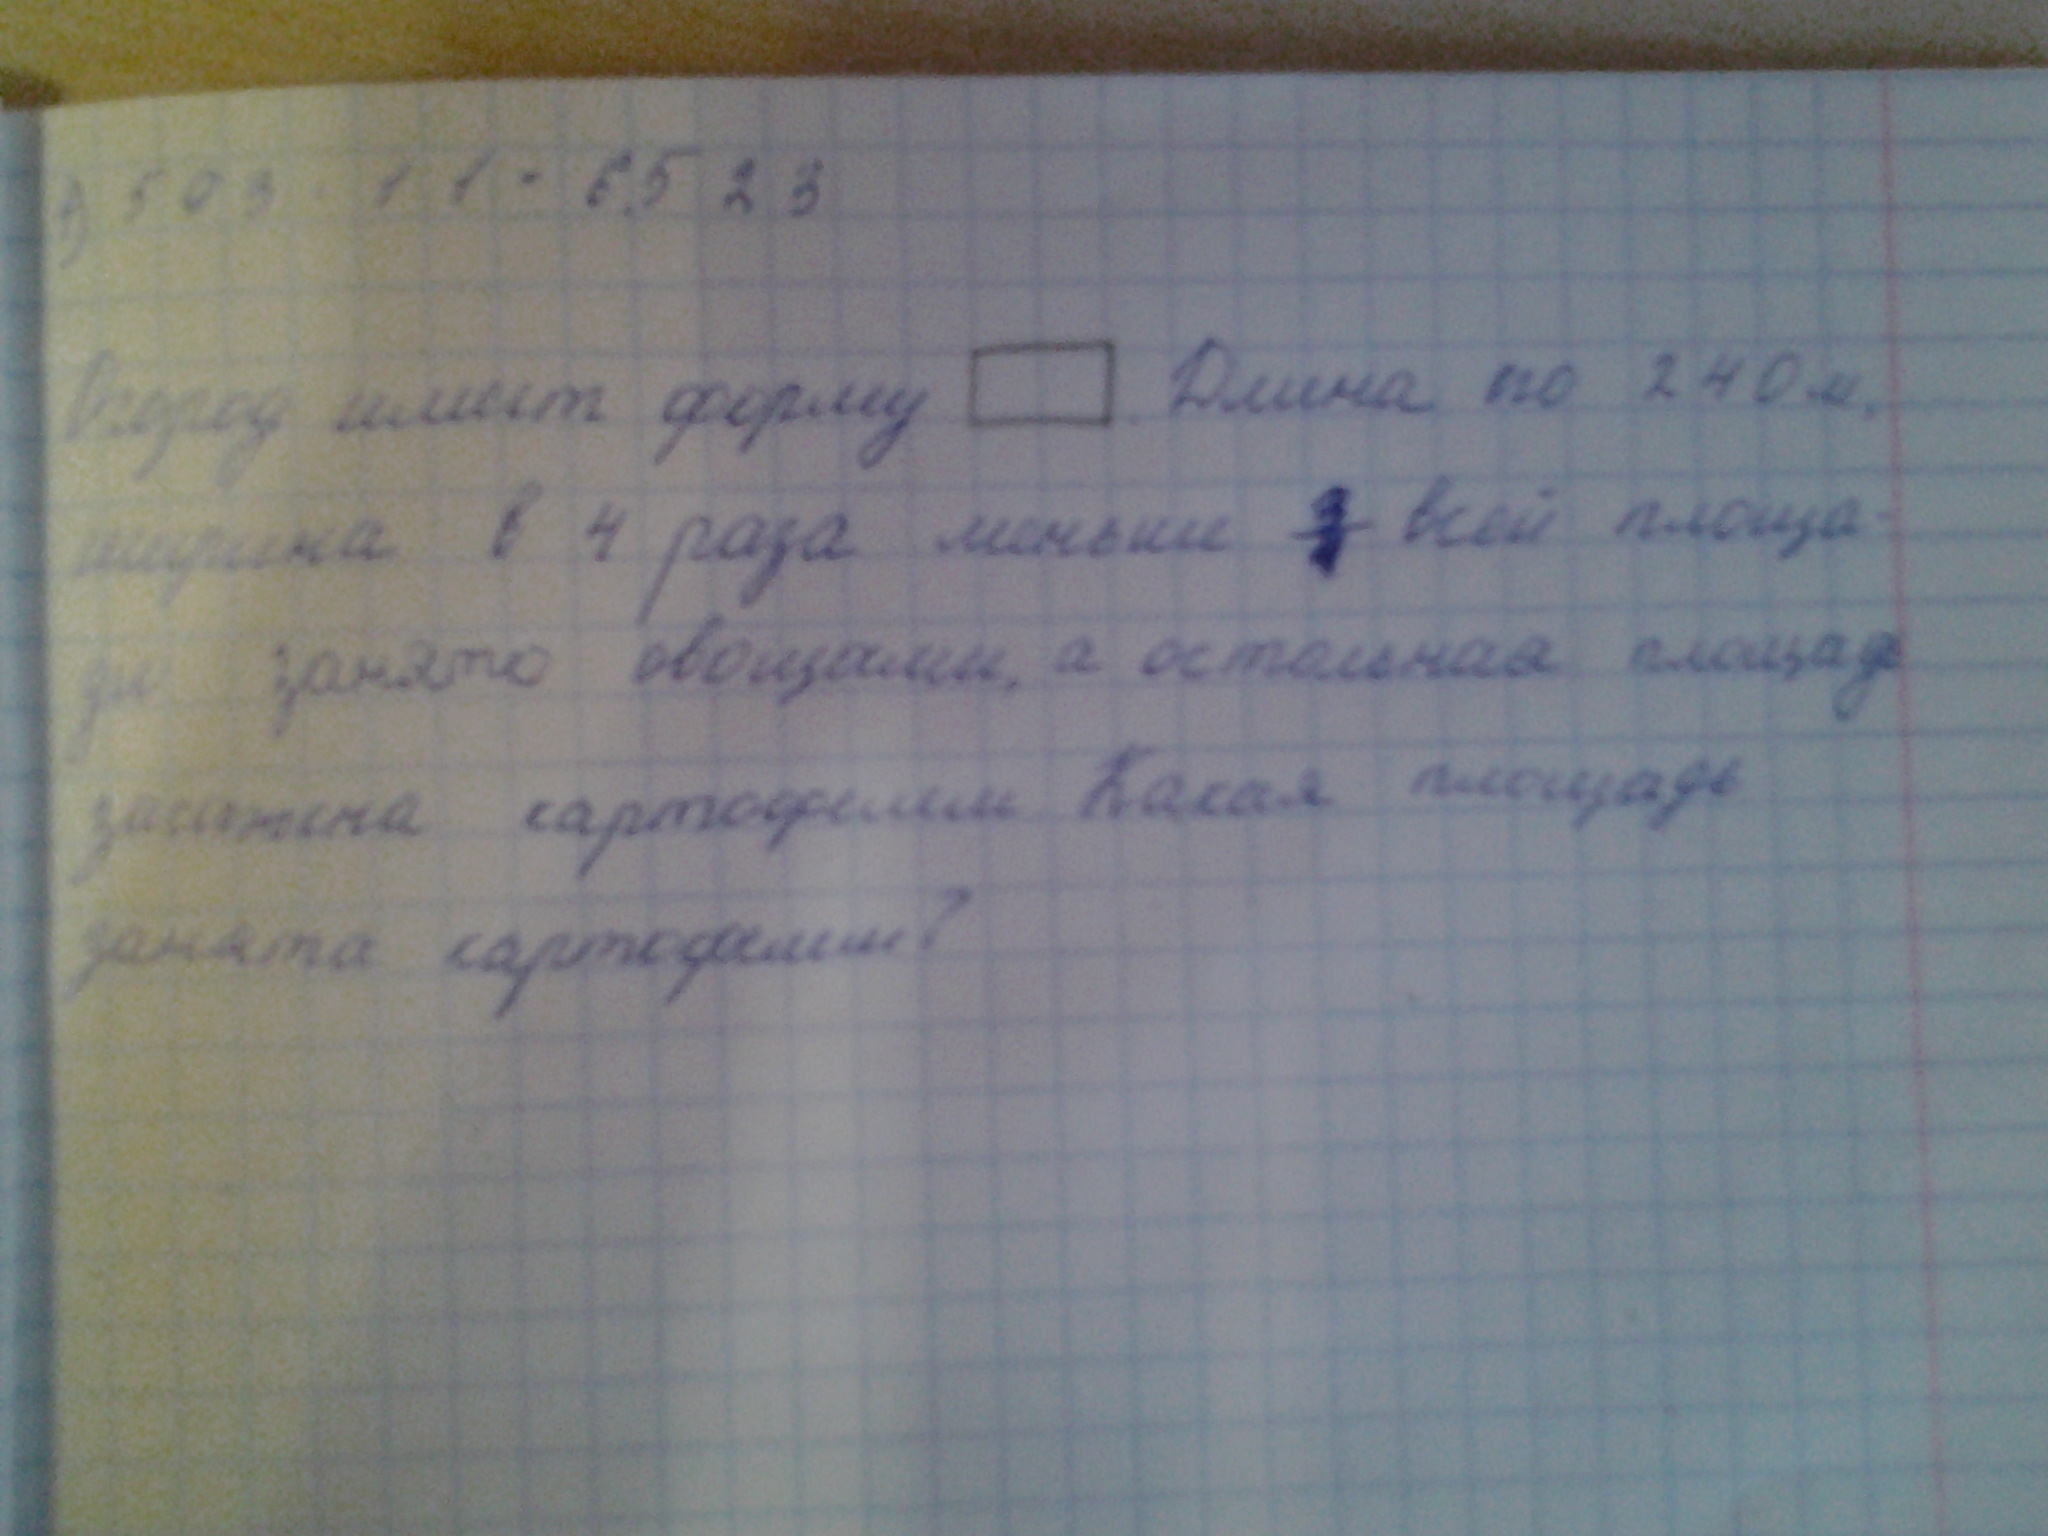 503 · 11 = 6523
Огород имеет форму . Длина по 240 м,
ширина в 4 раза меньше всей площа-
ди занято овощами, а остальная площадь
засажена картофелем Какая площадь
занята картофелем?